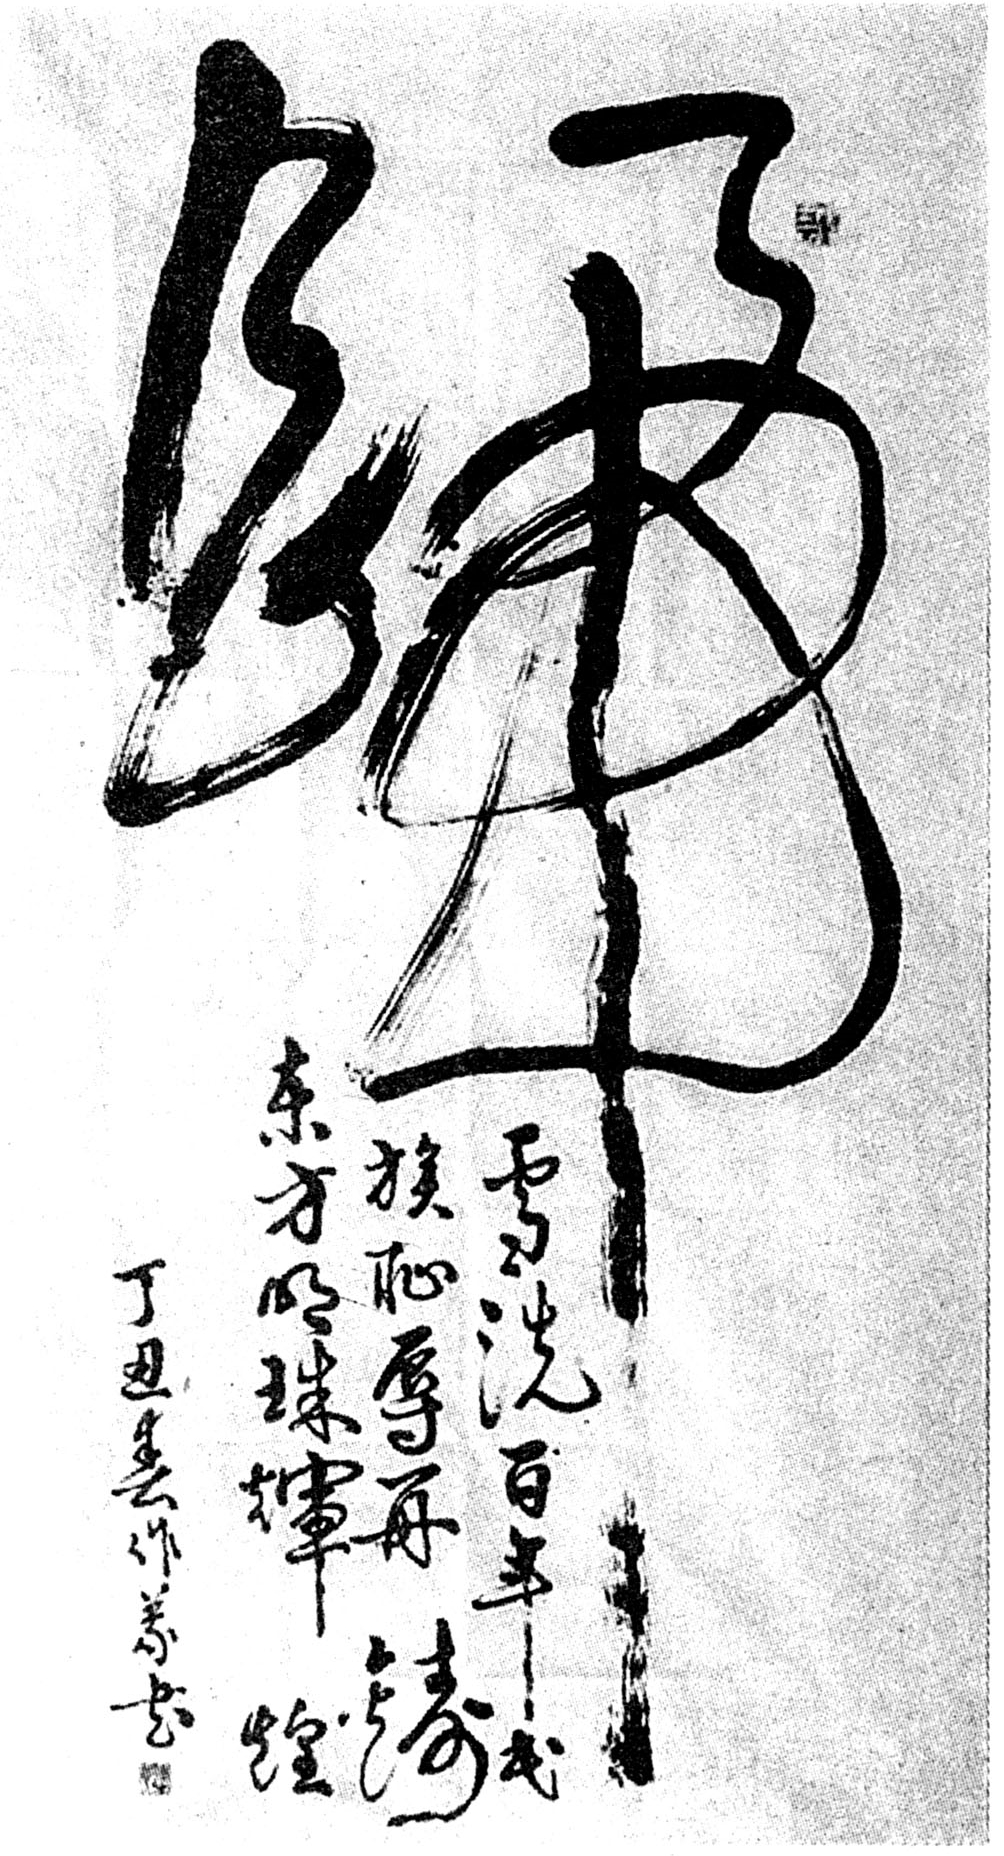 歸
雪洗百年民
族恥辱再鑄
东方明珠輝煌
丁丑春作義书